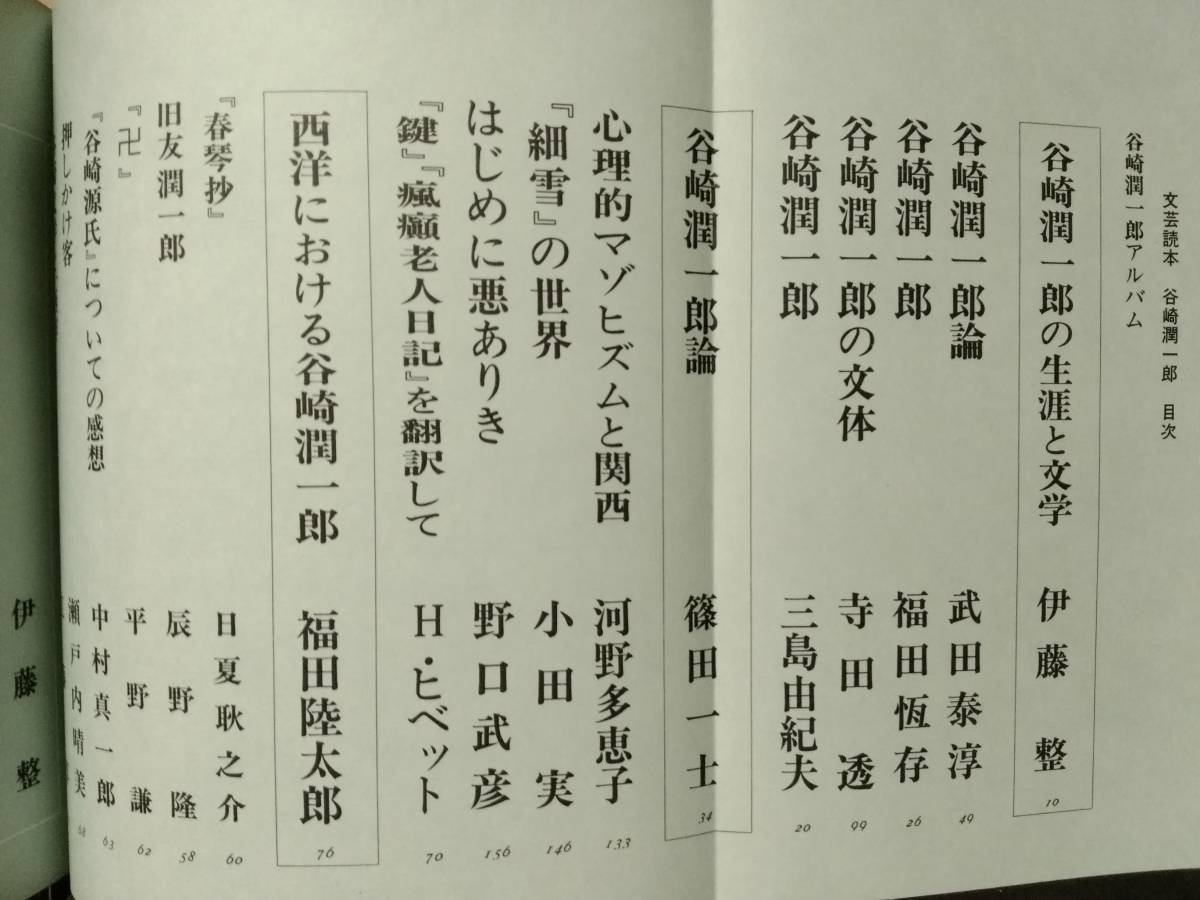 文芸読本　谷崎潤一郎　目次
谷崎潤一郎アルバム
谷崎潤一郎の生涯と文学　伊藤　整　10
谷崎潤一郎論　武田泰淳　49
谷崎潤一郎　福田恆存　26
谷崎潤一郎の文体　寺田　透　99
谷崎潤一郎　三島由紀夫　20
谷崎潤一郎論　篠田一士　34
心理的マゾヒズムと関西　河野多恵子　133
『細雪』の世界　小田　実　146
はじめに悪ありき　野口武彦　156
『鍵』『瘋癲老人日記』を翻訳して　H・ヒベット　70
西洋における谷崎潤一郎　福田陸太郎　76
『春琴抄』　日夏耿之介　60
旧友潤一郎　辰野　隆　58
『卍』　平野　謙　62
『谷崎源氏』についての感想　中村真一郎　63
押しかけ客　瀬戸内晴美　68
伊藤　整